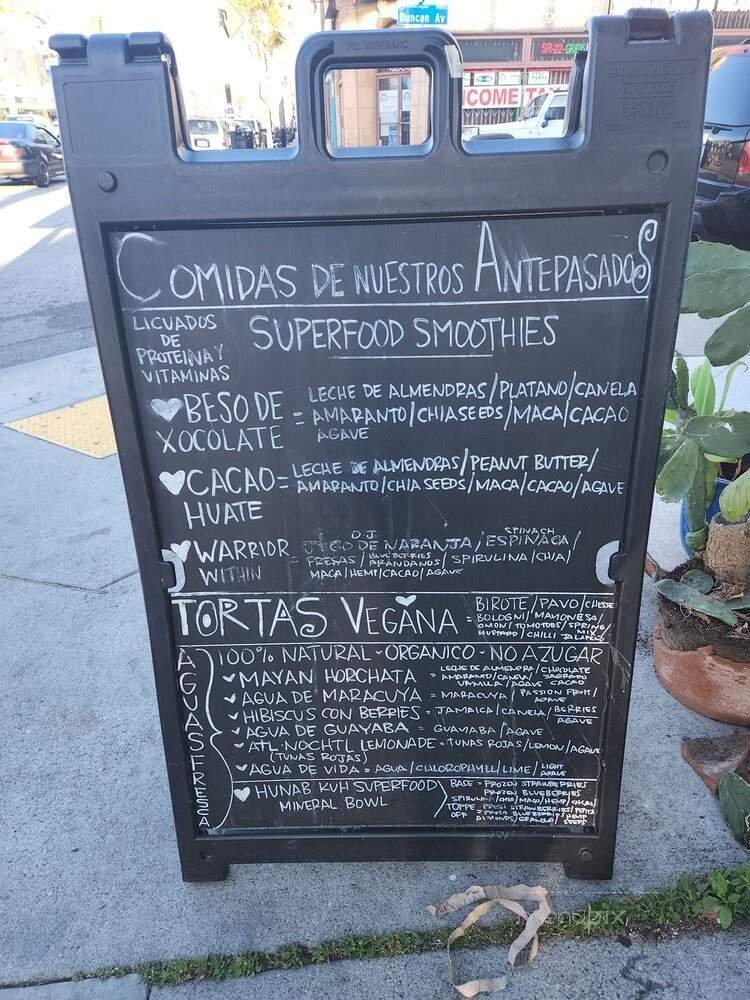 Duncan Av
FILL WITH SAND
SR-22
INCOME TA
COMIDAS DE NUESTROS ANTEPASADOS
LICUADOS
DE
PROTEINA Y
VITAMINAS
SUPERFOOD SMOOTHIES
BESO DE
XOCOLATE
= LECHE DE ALMENDRAS/PLATANO/CANELA
AMARANTO/CHIA SEEDS/MACA/CACAO
AGAVE
CACAO
HUATE
= LECHE DE ALMENDRAS/PEANUT BUTTER/
AMARANTO/CHIA SEEDS/MACA/CACAO/AGAVE
WARRIOR
WITHIN
= O.J. SPINACH
JUGO DE NARANJA/ESPINACA/
BLUEBERRIES
FRESAS/ARANDANOS/SPIRULINA/CHIA/
MACA/HEMP/CACAO/AGAVE
TORTAS VEGANA =
BIROTE/PAVO/CHEESE
BOLOGNI/MAYONESA/
ONION/TOMOTOES/SPRING MIX
MUSTARD/CHILLI JALAPEÑO
AGUAS FRESCA
100% NATURAL - ORGANICO - NO AZUGAR
MAYAN HORCHATA = LECHE DE ALMENDRA/CHOCOLATE
AMARANTO/CANELA/SAGRADO
VAINILLA/AGAVE CACAO
AGUA DE MARACUYA = MARACUYA/PASSION FRUIT/
AGAVE
HIBISCUS CON BERRIES = JAMAICA/CANELA/BERRIES
AGAVE
AGUA DE GUAYABA = GUAYABA/AGAVE
ATL-NOCHTLI LEMONADE = TUNAS ROJAS/LEMON/AGAVE
(TUNAS ROJAS)
AGUA DE VIDA = AGUA/CHLOROPHYLL/LIME/LIGHT
AGAVE
HUNAB KUH SUPERFOOD
MINERAL BOWL
BASE = FROZEN STRAWBERRIES
FROZEN BLUEBERRIES
SPIRULINA/CHIA/MACA/HEMP/CACAO/
TOPPE = FRESH STRAWBERRIES/PEPITA
OFF = FRESH BLUEBERRIES/HEMP
ALMONDS/GRANOLA/SEEDS